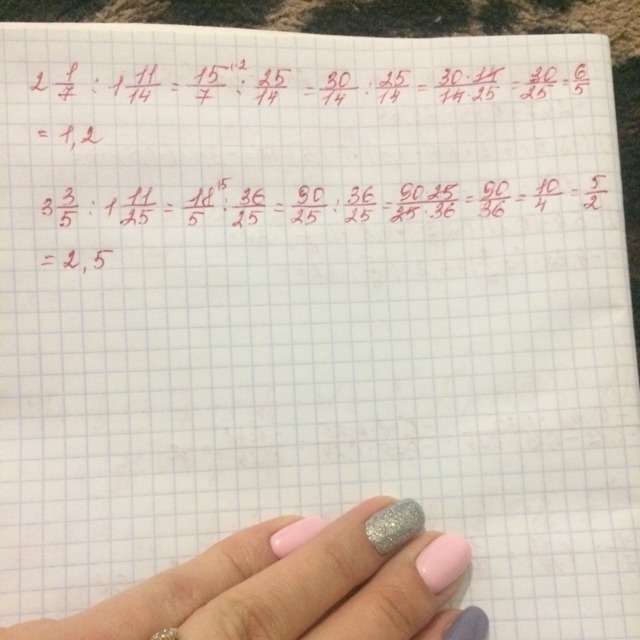 2 1/7 : 1 11/14 = 15/7 ^(·2) : 25/14 = 30/14 : 25/14 = 30·14/14·25 = 30/25 = 6/5
= 1,2
3 3/5 : 1 11/25 = 18/5 ^(·5) : 36/25 = 90/25 : 36/25 = 90·25/25·36 = 90/36 = 10/4 = 5/2
= 2,5